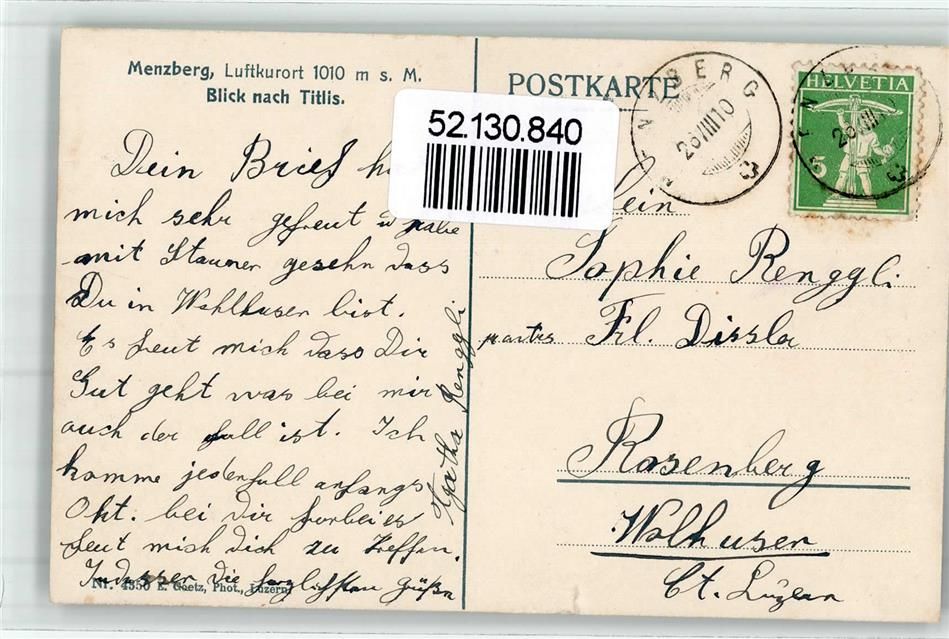 Menzberg, Luftkurort 1010 m s. M.
Blick nach Titlis.
POSTKARTE
52.130.840
HELVETIA
5
BERG
28 VIII 10
Dein Brief
mich sehr gefreut u habe
mit Stauner gesehn dass
Du in Wohlhusen bist.
Es freut mich dass Dir
Gut geht was bei mir
auch der fall ist. Ich
komme jedenfall anfangs
Okt. bei Dir forbei es
freut mich dich zu treffen.
Indessen die Grüße
Agatha Renggli
Sophie Renggli
Frl. Dissler
Rosenberg
Wolhusen
Ct. Luzern
Nr. 4350 E. Goetz, Phot., Luzern